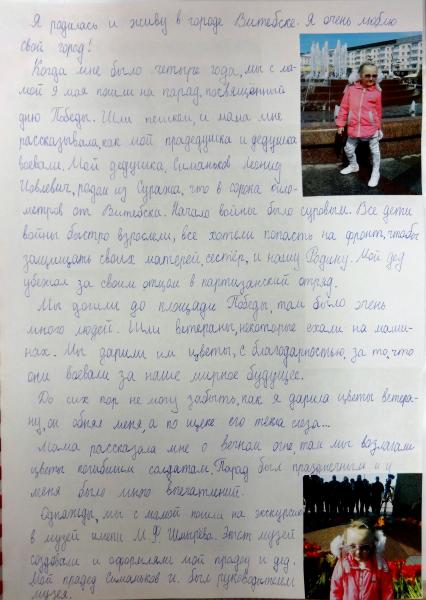 Я родилась и живу в городе Витебске. Я очень люблю
свой город!
Когда мне было четыре года, мы с ма-
мой 9 мая пошли на парад, посвященный
дню Победы. Шли пешком, и мама мне
рассказывала, как мой прадедушка и дедушка
воевали. Мой дедушка, Симаньков Леонид
Иовлевич, родом из Суража, что в сорока кило-
метров от Витебска. Начало войны было суровым. Все дети
войны быстро взрослели, все хотели попасть на фронт, чтобы
защищать своих матерей, сестёр, и нашу Родину. Мой дед
убежал за своим отцом в партизанский отряд.
Мы дошли до площади Победы, там было очень
много людей. Шли ветераны, некоторые ехали на маши-
нах. Мы дарили им цветы, с благодарностью, за то, что
они воевали за наше мирное будущее.
До сих пор не могу забыть, как я дарила цветы ветера-
ну, он обнял меня, а по щеке его текла слеза...
Мама рассказала мне о вечном огне, там мы возлагали
цветы погибшим солдатам. Парад был праздничным и у
меня было много впечатлений.
Однажды, мы с мамой пошли на экскурсию
в музей имени М.Ф Шмырёва. Этот музей
создавали и оформляли мой прадед и дед.
Мой прадед Симаньков И. был руководителем
музея.